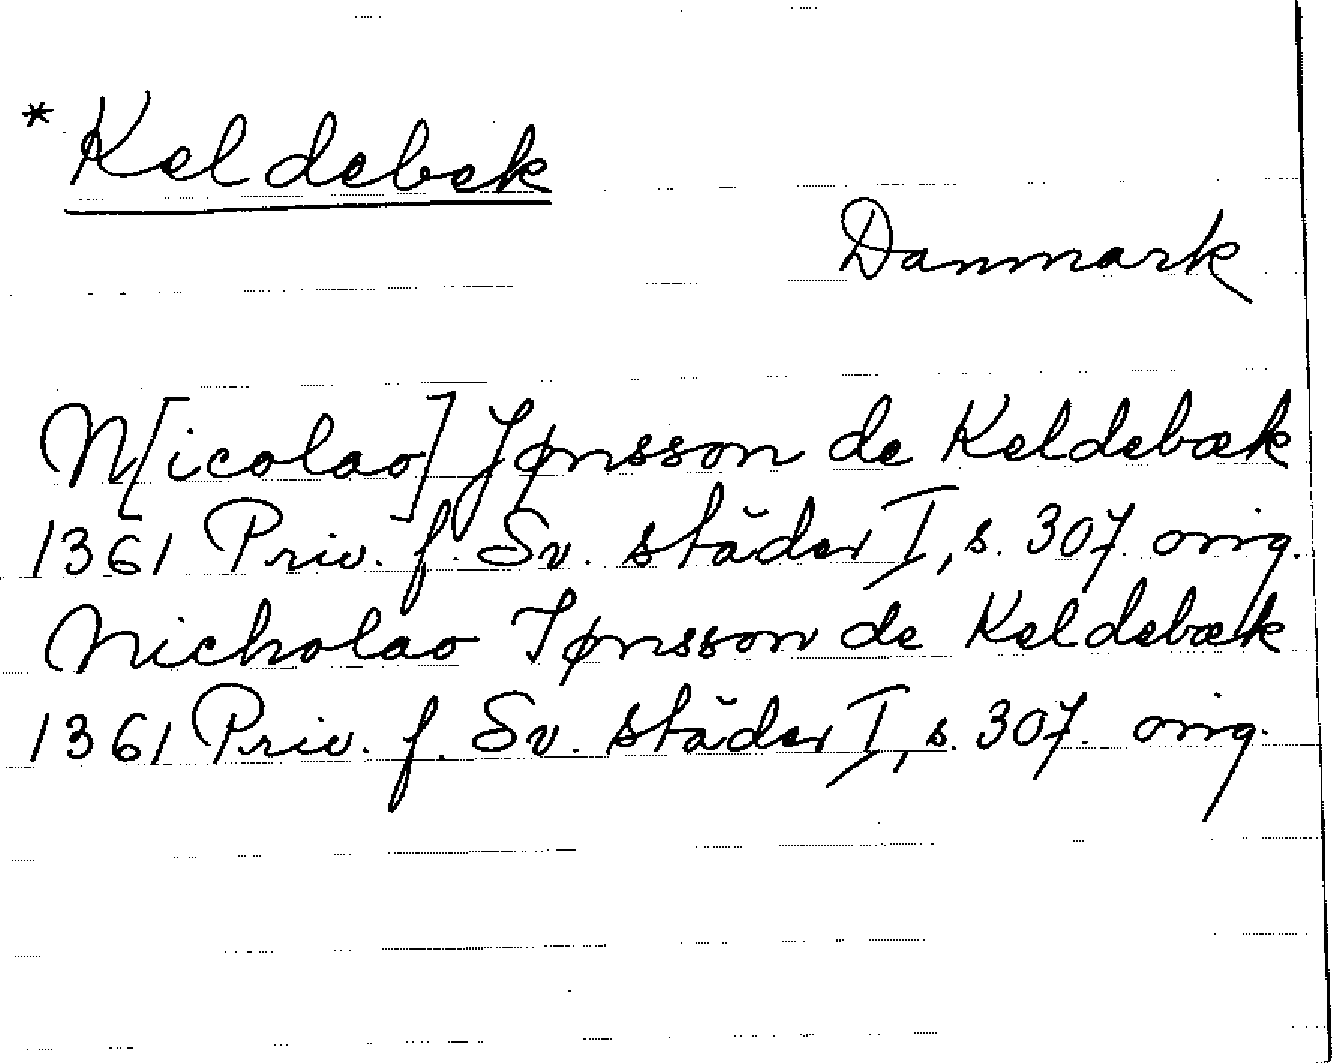 * Keldebek
Danmark
N[icolao] Jønsson de Keldebæk
1361 Priv. f. Sv. städer I, s. 307. orig.
Nicholao Jønsson de Keldebæk
1361 Priv. f. Sv. städer I, s. 307. orig.